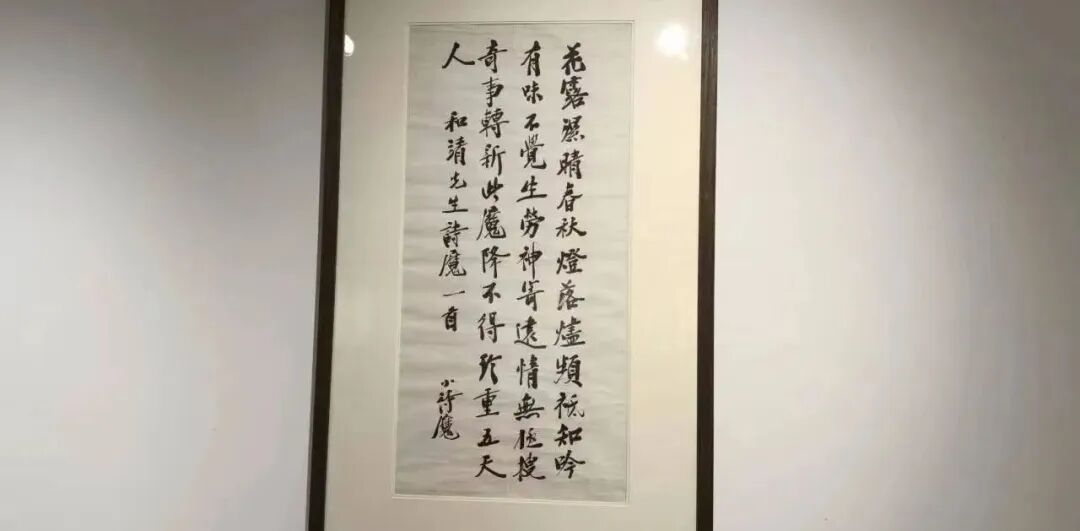 花露濕晴春秋燈落燼頻祇知吟
有味不覺生勞神寄遠情無極搜
奇事轉新此魔降不得珍重五天
人 和靖先生詩魔一首